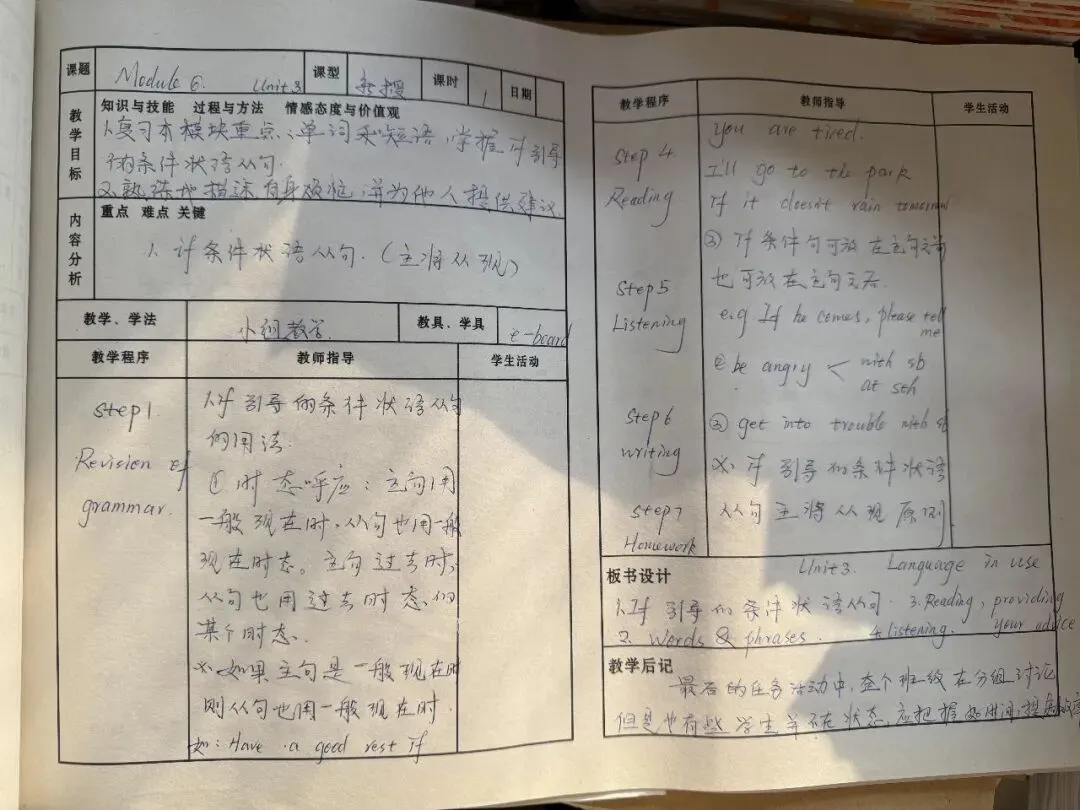 课题 Module 6. Unit 3 课型 新授 课时 1 日期
教学目标
知识与技能 过程与方法 情感态度与价值观
1.复习本模块重点、单词和短语,掌握if引导
的条件状语从句.
2.熟练地描述自身烦恼,并为他人提供建议.
内容分析
重点 难点 关键
1. if条件状语从句.(主将从现)
教学、学法 小组教学. 教具、学具 e-board
教学程序 教师指导 学生活动
step1.
Revision of
grammar.
1.if引导的条件状语从句
的用法:
① 时态呼应:主句用
一般现在时,从句也用一般
现在时态。主句过去时,
从句也用过去时态的
某个时态.
※如果主句是一般现在时
则从句也用一般现在时.
如:Have a good rest if
教学程序 教师指导 学生活动
Step 4.
Reading
Step 5
Listening
Step 6
writing
step 7
Homework
you are tired.
I'll go to the park
if it doesn't rain tomorrow
② If条件句可放在主句之前
也可放在主句之后.
e.g If he comes, please tell
me
be angry < with sb
at sth
③ get into trouble with sb
※ if引导的条件状语
从句主将从现原则
板书设计 Unit 3. Language in use
1.If引导的条件状语从句. 3.Reading, providing
2. Words & phrases. 4.listening. your advice
教学后记
最后的任务活动中,整个班级在分组讨论
但是也有些学生并不在状态,应把握好时间,提高